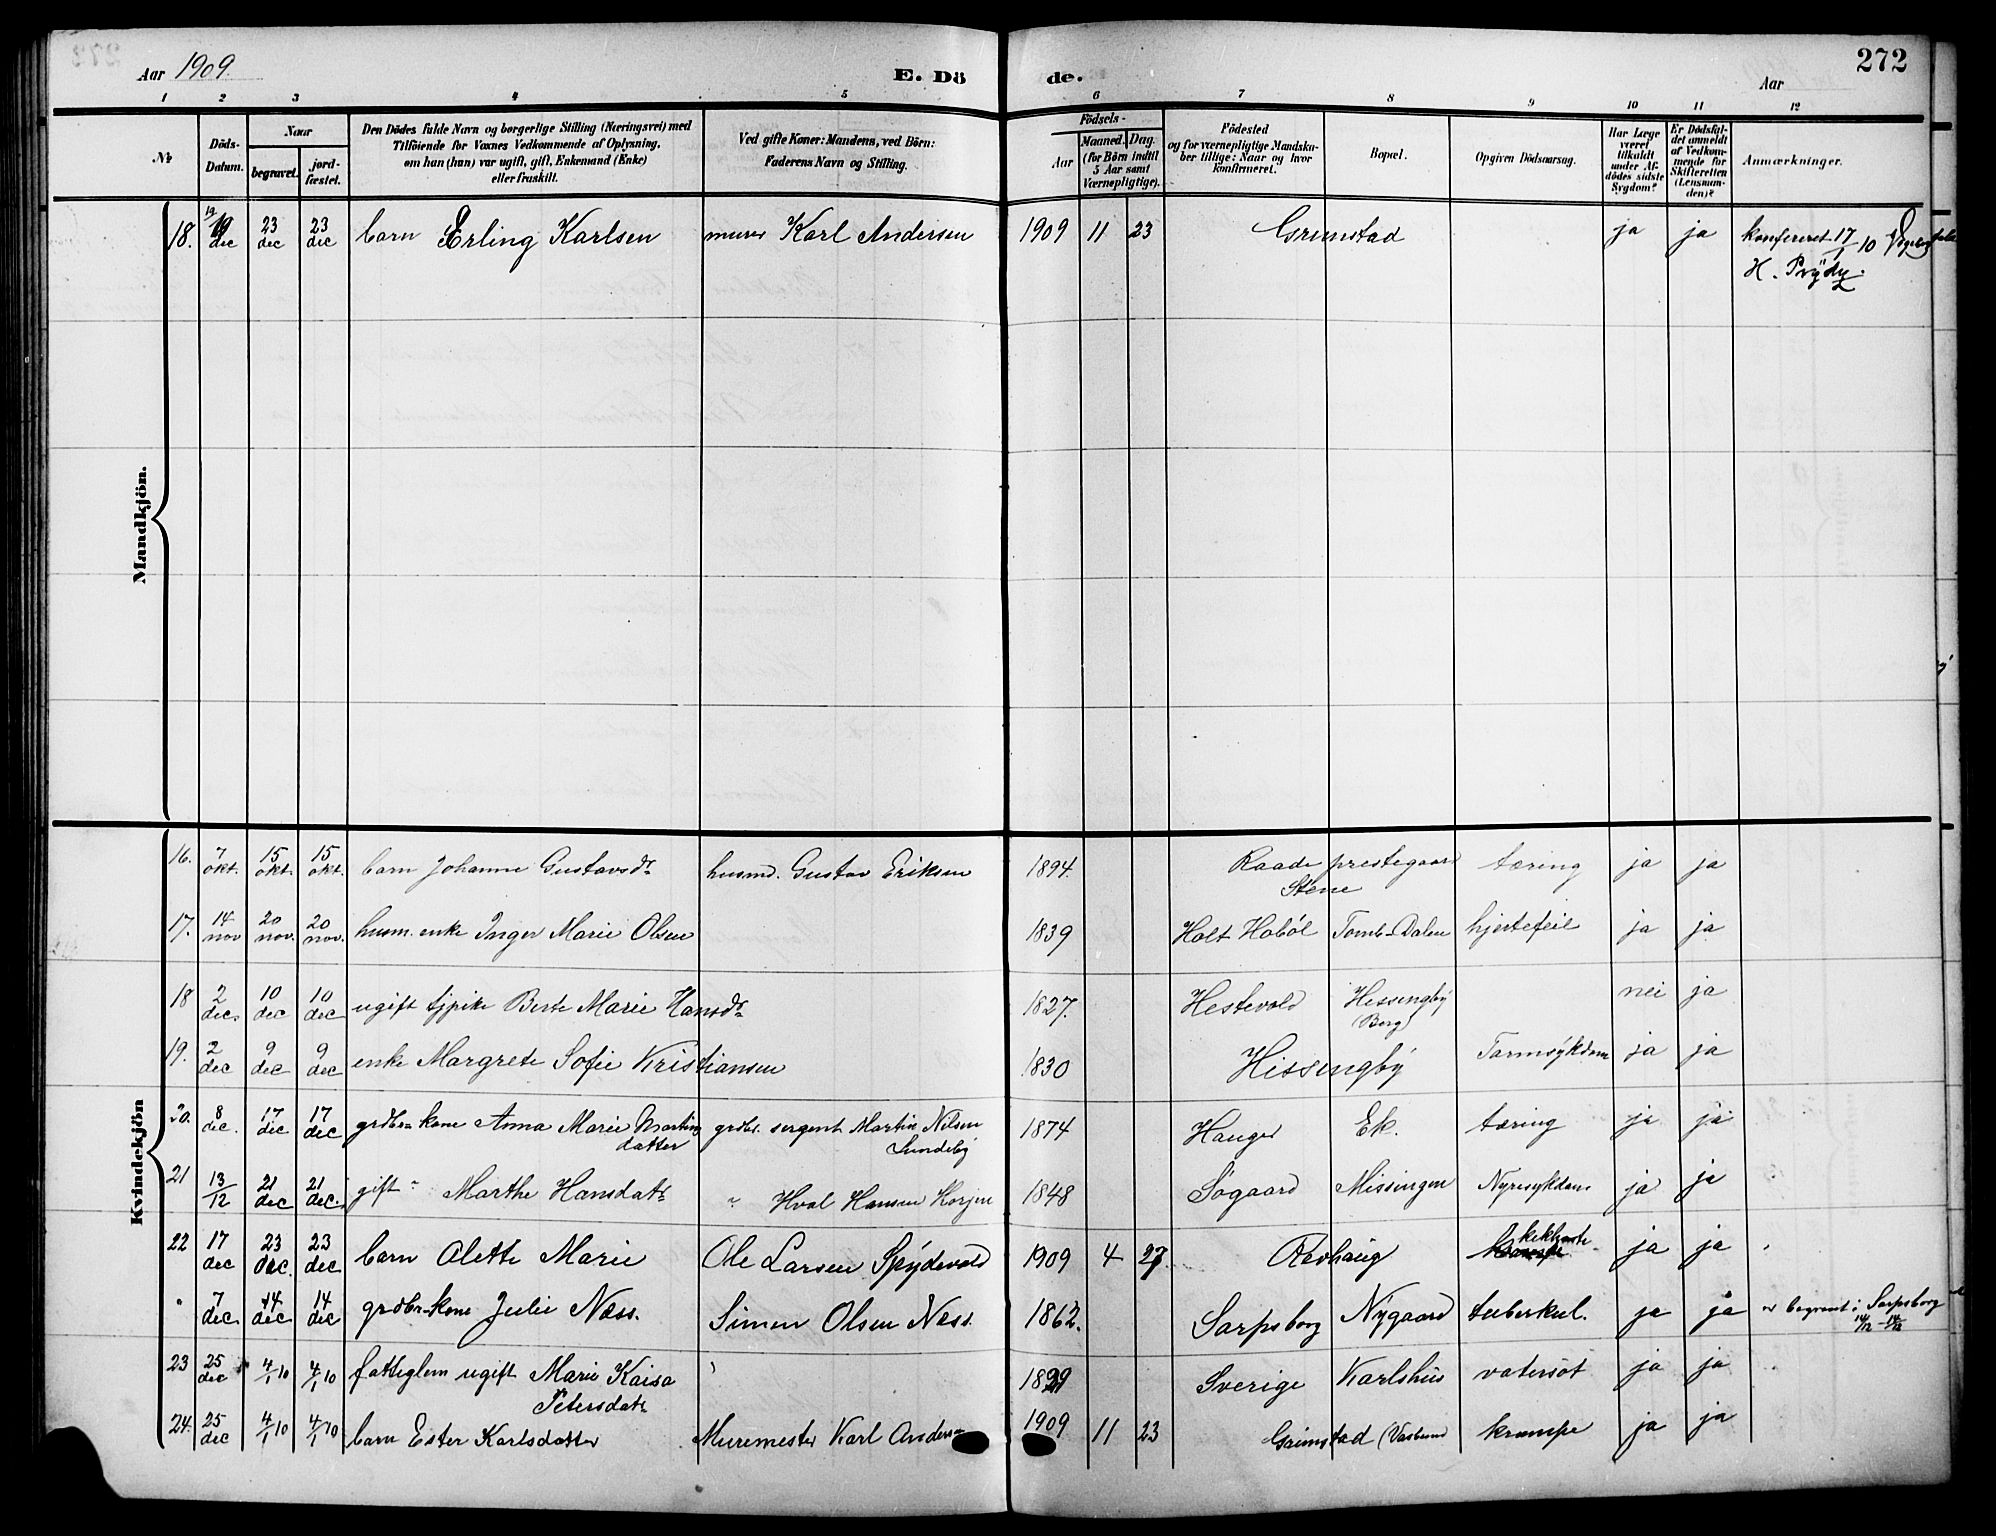 Aar 1909. E. Dö de. Aar 272
1 2 3 4 5 6 7 8 9 10 11 12
№ Döds-Datum. Naar begravet. jordfæstet. Den Dödes fulde Navn og borgerlige Stilling (Næringsvei) med Tilföiende for Voxnes Vedkommende af Oplysning, om han (hun) var ugift, gift, Enkemand (Enke) eller fraskilt. Ved gifte Koner: Mandens, ved Börn: Faderens Navn og Stilling. Födsels- Aar Maaned. Dag. (for Börn indtil 5 Aar samt Værnepligtige). Födested og for værnepligtige Mandskaber tillige: Naar og hvor konfirmeret. Bopæl. Opgiven Dödsaarsag. Har Læge været tilkaldt under Afdödes sidste Sygdom? Er Dödsfaldet anmeldt af Vedkommende for Skifteretten (Lensmanden)? Anmærkninger.
Mandkjön.
18. 19 dec 23 dec 23 dec barn Erling Karlsen murer Karl Andersen 1909 11 23 Grimstad ja ja konfereret 17/1 10
H. Prydz
Kvindekjön
16. 7 okt. 15 okt. 15 okt. barn Johanne Gustavsdr husmd. Gustav Eriksen 1894. Raade prestegaard tæring ja ja
Stene
17. 14 nov 20 nov. 20 nov. husm. enke Inger Marie Olsen 1839 Holt Hobøl Tomb-Dalen hjertefeil ja ja
18 2 dec. 10 dec 10 dec ugift tjpike Berte Marie Hansdr 1827. Hestevold Hissingby nei ja
(Borg)
19. 2 dec 9 dec 9 dec enke Margrete Sofie Kristiansen 1830 Hissingby Tarmsykdom ja ja
20. 8 dec. 17 dec 17 dec grdbr-kone Anna Marie Martins grdbr. sergent Martin Nilsen 1874 Hauger Ek. tæring ja ja
datter Lundeby
21 13/12 21 dec 21 dec. gift " Marthe Hansdatr " Hval Hansen 1848 Søgaard Missingen Nyresykdom ja ja
22 17 dec 23 dec. 23 dec barn Olette Marie Ole Larsen Spydevold 1909 4 27. Rødhaug kikhoste ja ja
" 7 dec. 14 dec 14 dec grdbr-kone Julie Næss. Simen Olsen Næss. 1862. Sarpsborg Nygaard tuberkul. ja ja er begravet i Sarpsborg
14/12 - 14/12
23 25 dec 4/1 10 4/1 10 fattiglem ugift Marie Kaisa 1829 Sverige Karlshus vatersot ja ja
Petersdatr
24. 25 dec 4/1 10 4/1 10 barn Ester Karlsdatter Muremester Karl Andersen 1909 11 23 Grimstad krampe ja ja